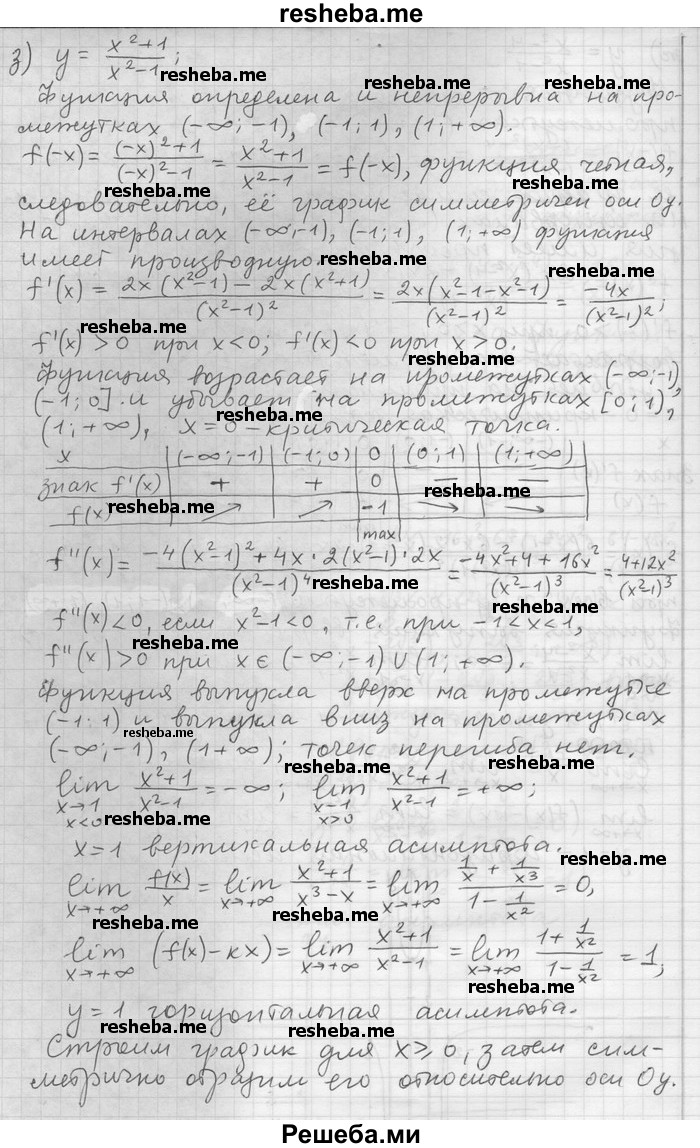 resheba.me
з) y = (x²+1)/(x²-1);
resheba.me
resheba.me
Функция определена и непрерывна на про-
межутках (-∞;-1), (-1;1), (1;+∞).
resheba.me
f(-x) = ((-x)²+1)/((-x)²-1) = (x²+1)/(x²-1) = f(-x), функция четная,
resheba.me
следовательно, её график симметричен оси Oy.
resheba.me
На интервалах (-∞;-1), (-1;1), (1;+∞) функция
имеет производную.
resheba.me
f'(x) = (2x(x²-1)-2x(x²+1))/(x²-1)² = 2x(x²-1-x²-1)/(x²-1)² = -4x/(x²-1)²;
resheba.me
f'(x)>0 при x<0; f'(x)<0 при x>0.
resheba.me
Функция возрастает на промежутках (-∞;-1),
(-1;0] и убывает на промежутках [0;1),
resheba.me
(1;+∞), x=0 – критическая точка.
resheba.me
x (-∞;-1) (-1;0) 0 (0;1) (1;+∞)
знак f'(x) + + 0 − −
resheba.me
f(x) ↗ ↗ -1 ↘ ↘
resheba.me
max
f''(x) = (-4(x²-1)²+4x·2(x²-1)·2x)/(x²-1)⁴ = (-4x²+4+16x²)/(x²-1)³ = (4+12x²)/(x²-1)³
resheba.me
f''(x)<0, если x²-1<0, т.е. при -1<x<1,
resheba.me
f''(x)>0 при x∈(-∞;-1)∪(1;+∞).
resheba.me
Функция выпукла вверх на промежутке
resheba.me
(-1;1) и выпукла вниз на промежутках
resheba.me
(-∞;-1), (1+∞); точек перегиба нет.
resheba.me
lim x→1 x<0 (x²+1)/(x²-1) = -∞; lim x→1 x>0 (x²+1)/(x²-1) = +∞;
resheba.me
resheba.me
x=1 вертикальная асимптота.
resheba.me
lim x→+∞ f(x)/x = lim x→+∞ (x²+1)/(x³-x) = lim x→+∞ (1/x+1/x³)/(1-1/x²) = 0,
resheba.me
resheba.me
lim x→+∞ (f(x)-kx) = lim x→+∞ (x²+1)/(x²-1) = lim x→+∞ (1+1/x²)/(1-1/x²) = 1,
resheba.me
y=1 горизонтальная асимптота.
resheba.me
resheba.me
Строим график для x⩾0, затем сим-
resheba.me
метрично отразим его относительно оси Oy.
resheba.me
Решеба.ми